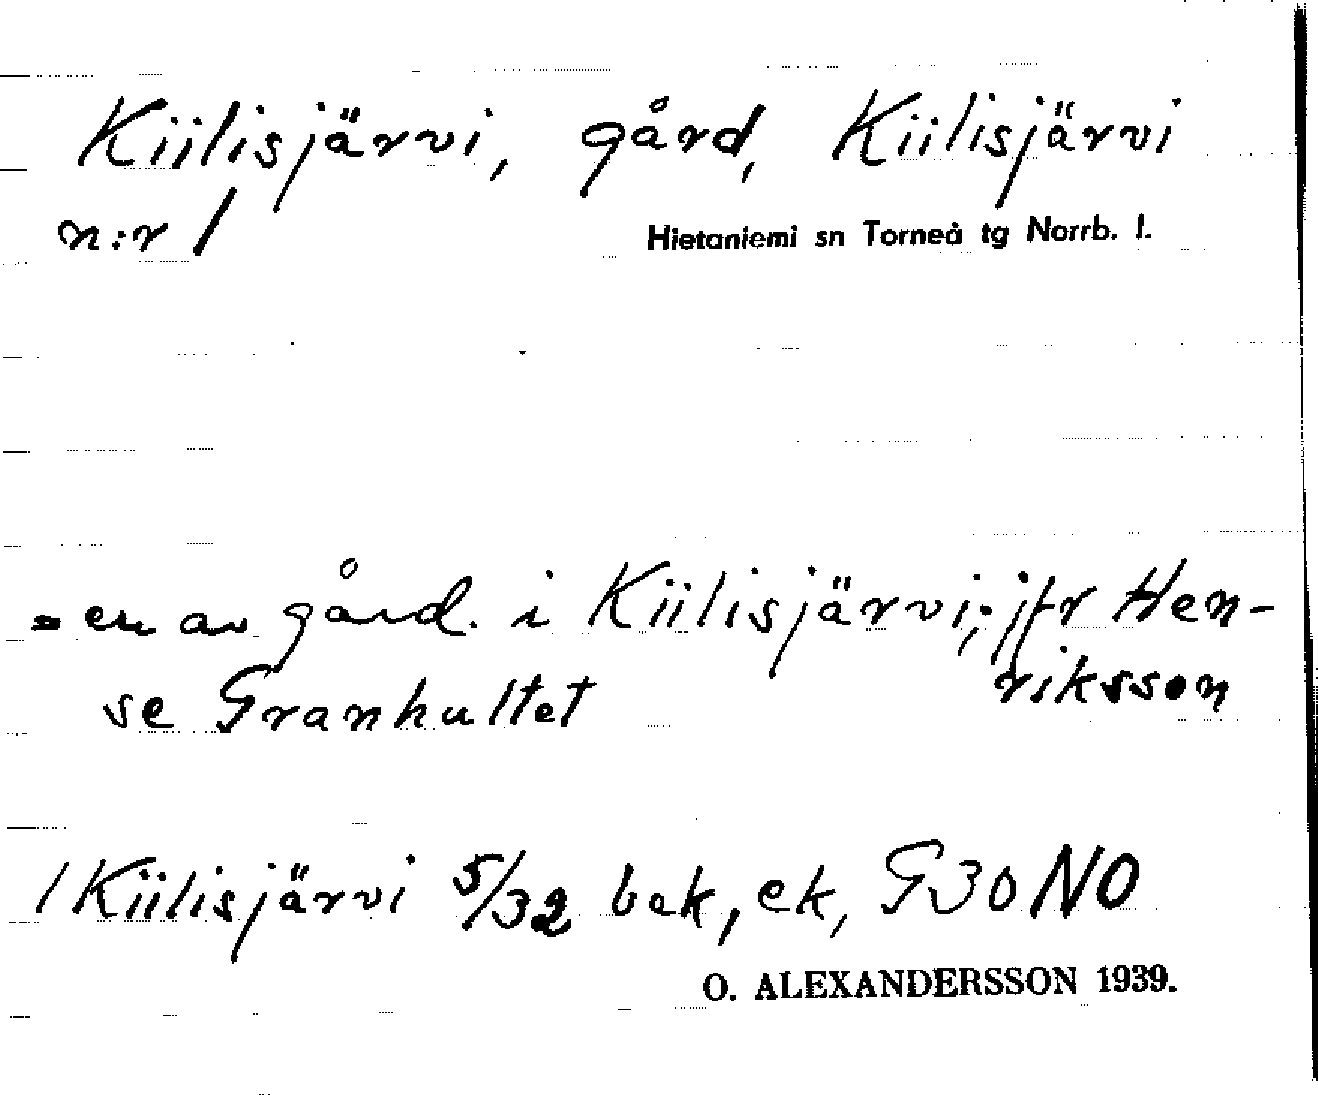 Kiilisjärvi, gård, Kiilisjärvi
n:r 1
Hietaniemi sn Torneå tg Norrb. l.
= en av gård. i Kiilisjärvi; jfr Hen-
riksson
se Granhultet
1 Kiilisjärvi 5/32 bek, ek, G30NO
O. ALEXANDERSSON 1939.